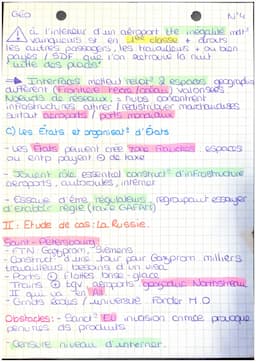 GÉO N°4
⚠ à l'intérieur d'un aéroport tte inégalité mdt
voyageurs st en 1ère classe + droits
les autres passagers, les travailleurs + ou bien
payés / SDF que l'on retrouve la nuit
"lutte des places"
⇒ Interfaces mettent relat° 2 espaces géographiq
différent (Frontière réelle / océan) valorisés
Noeuds de réseaux = hubs concentrent
infrastructures attirer / redistribuer marchandises
surtout aéroports / ports mondiaux
C) les États et organisat° d'États
- les États peuvent créer zone franches espaces
ou entp payent ⊖ de taxe
- Jouent rôle essentiel construct° d'infrastructure
aéroports, autoroutes, internet
- Essaye d'être régulateurs, regroupant essayer
d'établir règle (taxe GAFAM)
II: Etude de cas: La Russie.
Saint-Petersbourg
- FTN Gazprom, Siemens
- Construct° d'une tour pour Gazprom milliers
travailleurs besoins d'un visa
- Ports
Trains
- Grnds écoles / université Former M.O
Obstacles: - Sanct° EU invasion crimée provoque
pénuries de produits
- Censure niveau d'internet.